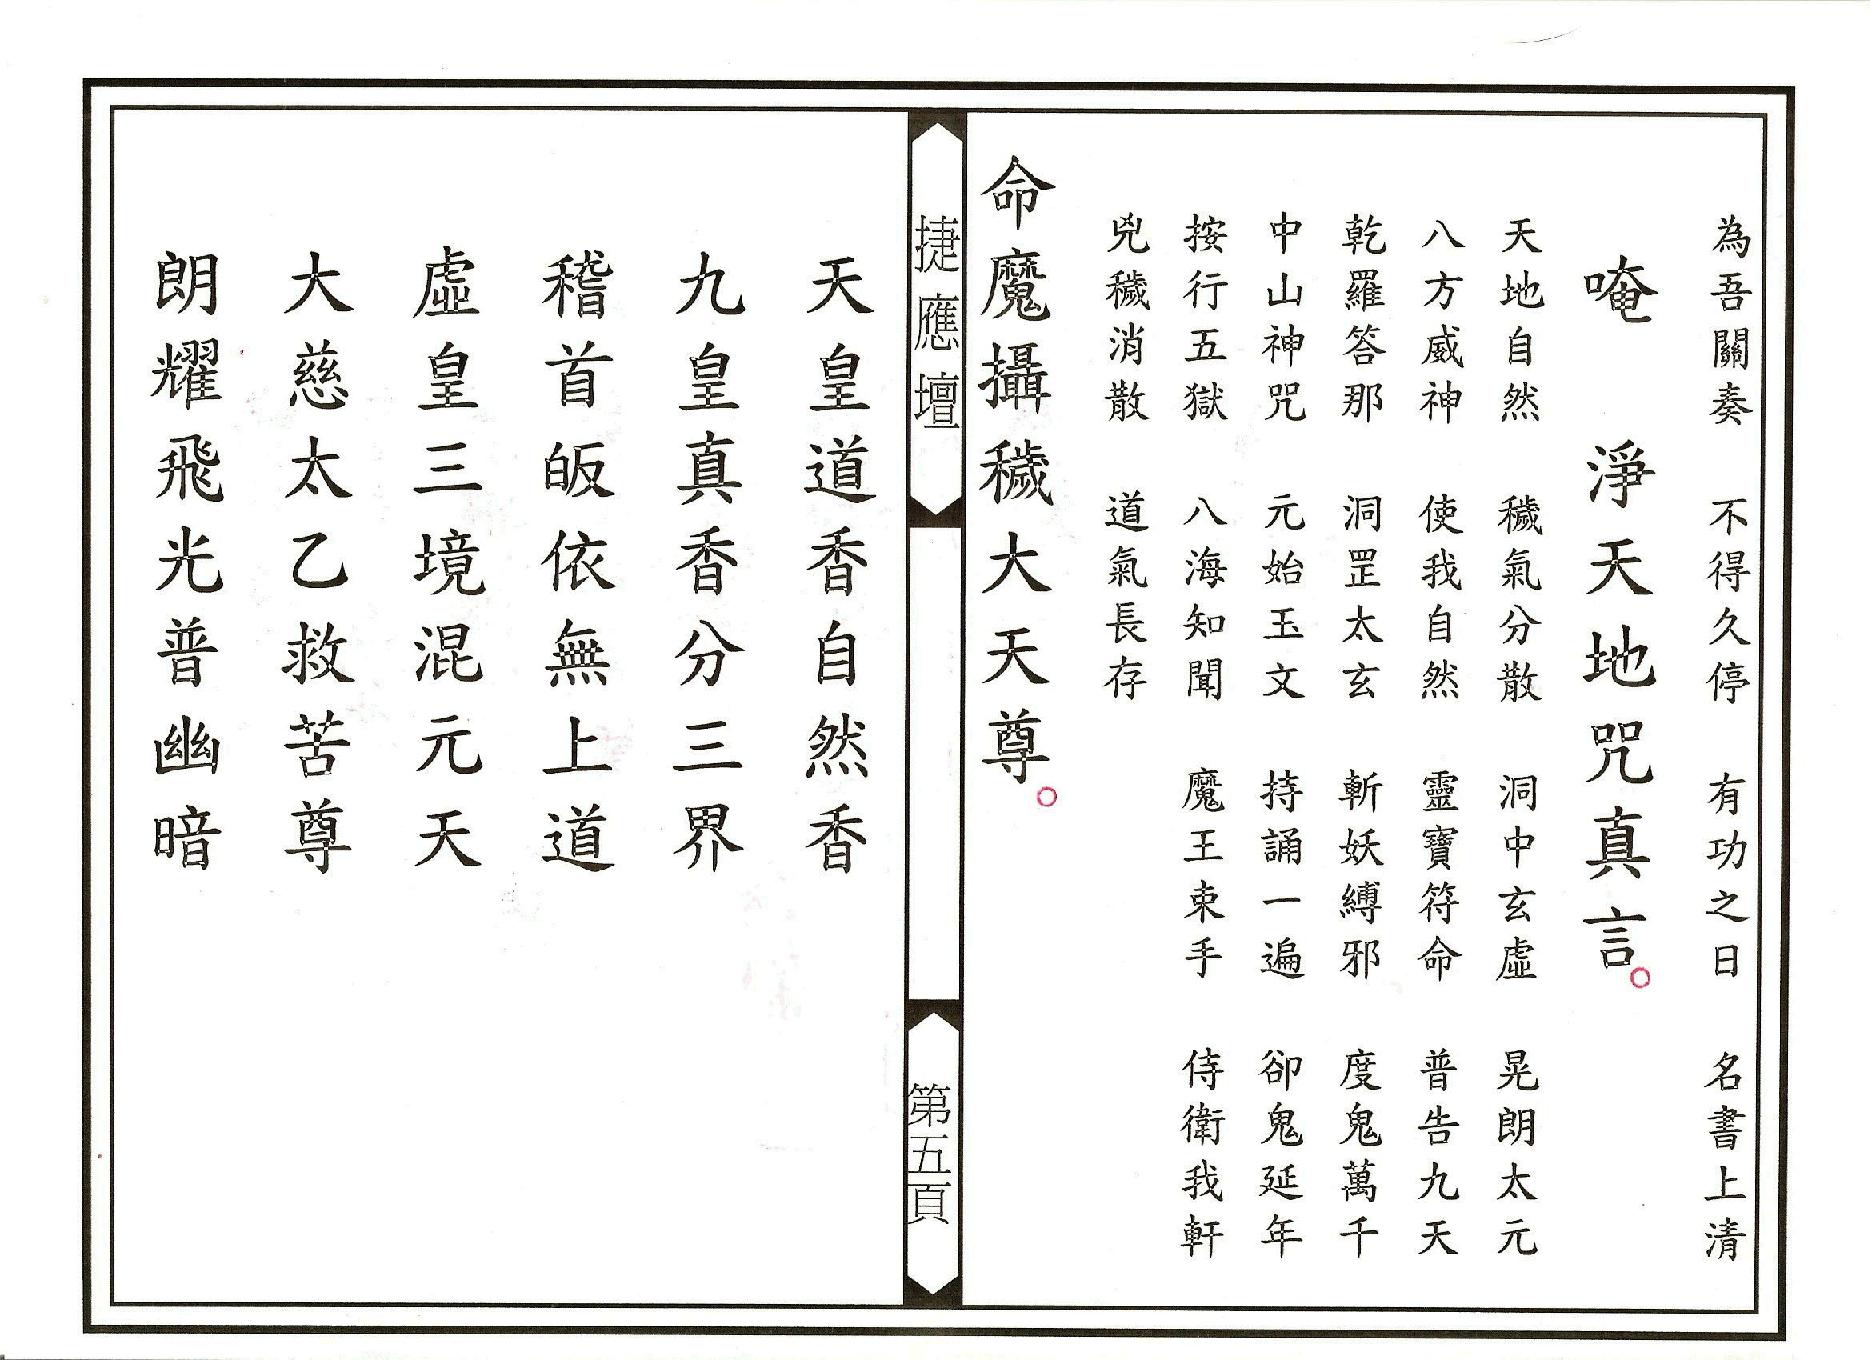 為吾關奏 不得久停 有功之日 名書上清
唵 淨天地咒真言
天地自然 穢氣分散 洞中玄虛 晃朗太元
八方威神 使我自然 靈寶符命 普告九天
乾羅答那 洞罡太玄 斬妖縛邪 度鬼萬千
中山神咒 元始玉文 持誦一遍 卻鬼延年
按行五獄 八海知聞 魔王束手 侍衛我軒
兇穢消散 道氣長存
命魔攝穢大天尊
捷應壇
第五頁
天皇道香自然香
九皇真香分三界
稽首皈依無上道
虛皇三境混元天
大慈太乙救苦尊
朗耀飛光普幽暗